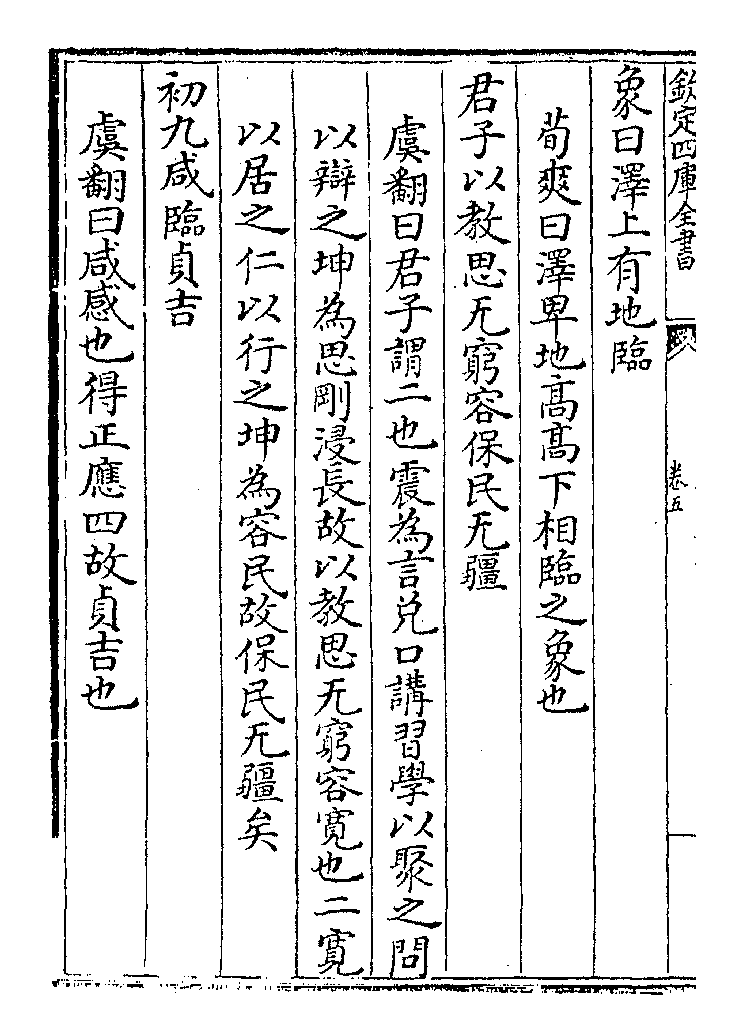 欽定四庫全書
卷五
象曰澤上有地臨
荀爽曰澤卑地高高下相臨之象也
君子以教思无窮容保民无疆
虞翻曰君子謂二也震為言兌口講習學以聚之問
以辯之坤為思剛浸長故以教思无窮容寛也二寛
以居之仁以行之坤為容民故保民无疆矣
初九咸臨貞吉
虞翻曰咸感也得正應四故貞吉也